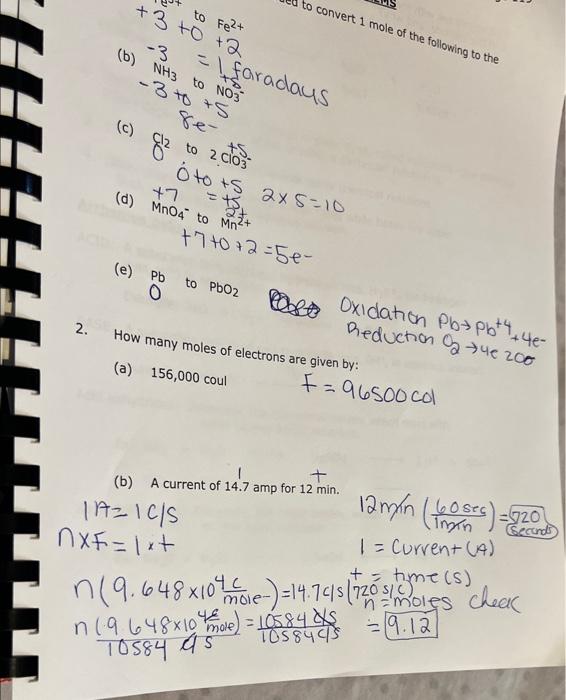 to Fe2+
to convert 1 mole of the following to the
+3 to +2
-3 = 1 faradays
(b) NH3 to NO3-
+5
-3 to +5
8e-
(c) Cl2 to 2 ClO3-
0 +5
0 to +5 2x5=10
+7 = +5
(d) MnO4- to Mn2+
2+
+7 to +2 = 5e-
(e) Pb to PbO2
0
Oxidation Pb→Pb+4 + 4e-
Reduction O2→4e 20
2. How many moles of electrons are given by:
(a) 156,000 coul
F = 96500 col
I t
(b) A current of 14.7 amp for 12 min.
1A = 1 C/S
12min (60 sec / 1min) = 720 seconds
n x F = I x t
I = current (A)
t = time (s)
n(9.648x10⁴ C/mole-) = 14.7 c/s (720 s/c)
n = moles check
n(9.648x10⁴ C/mole) / 10584 c/s = 10584 c/s / 10584 c/s = 9.12